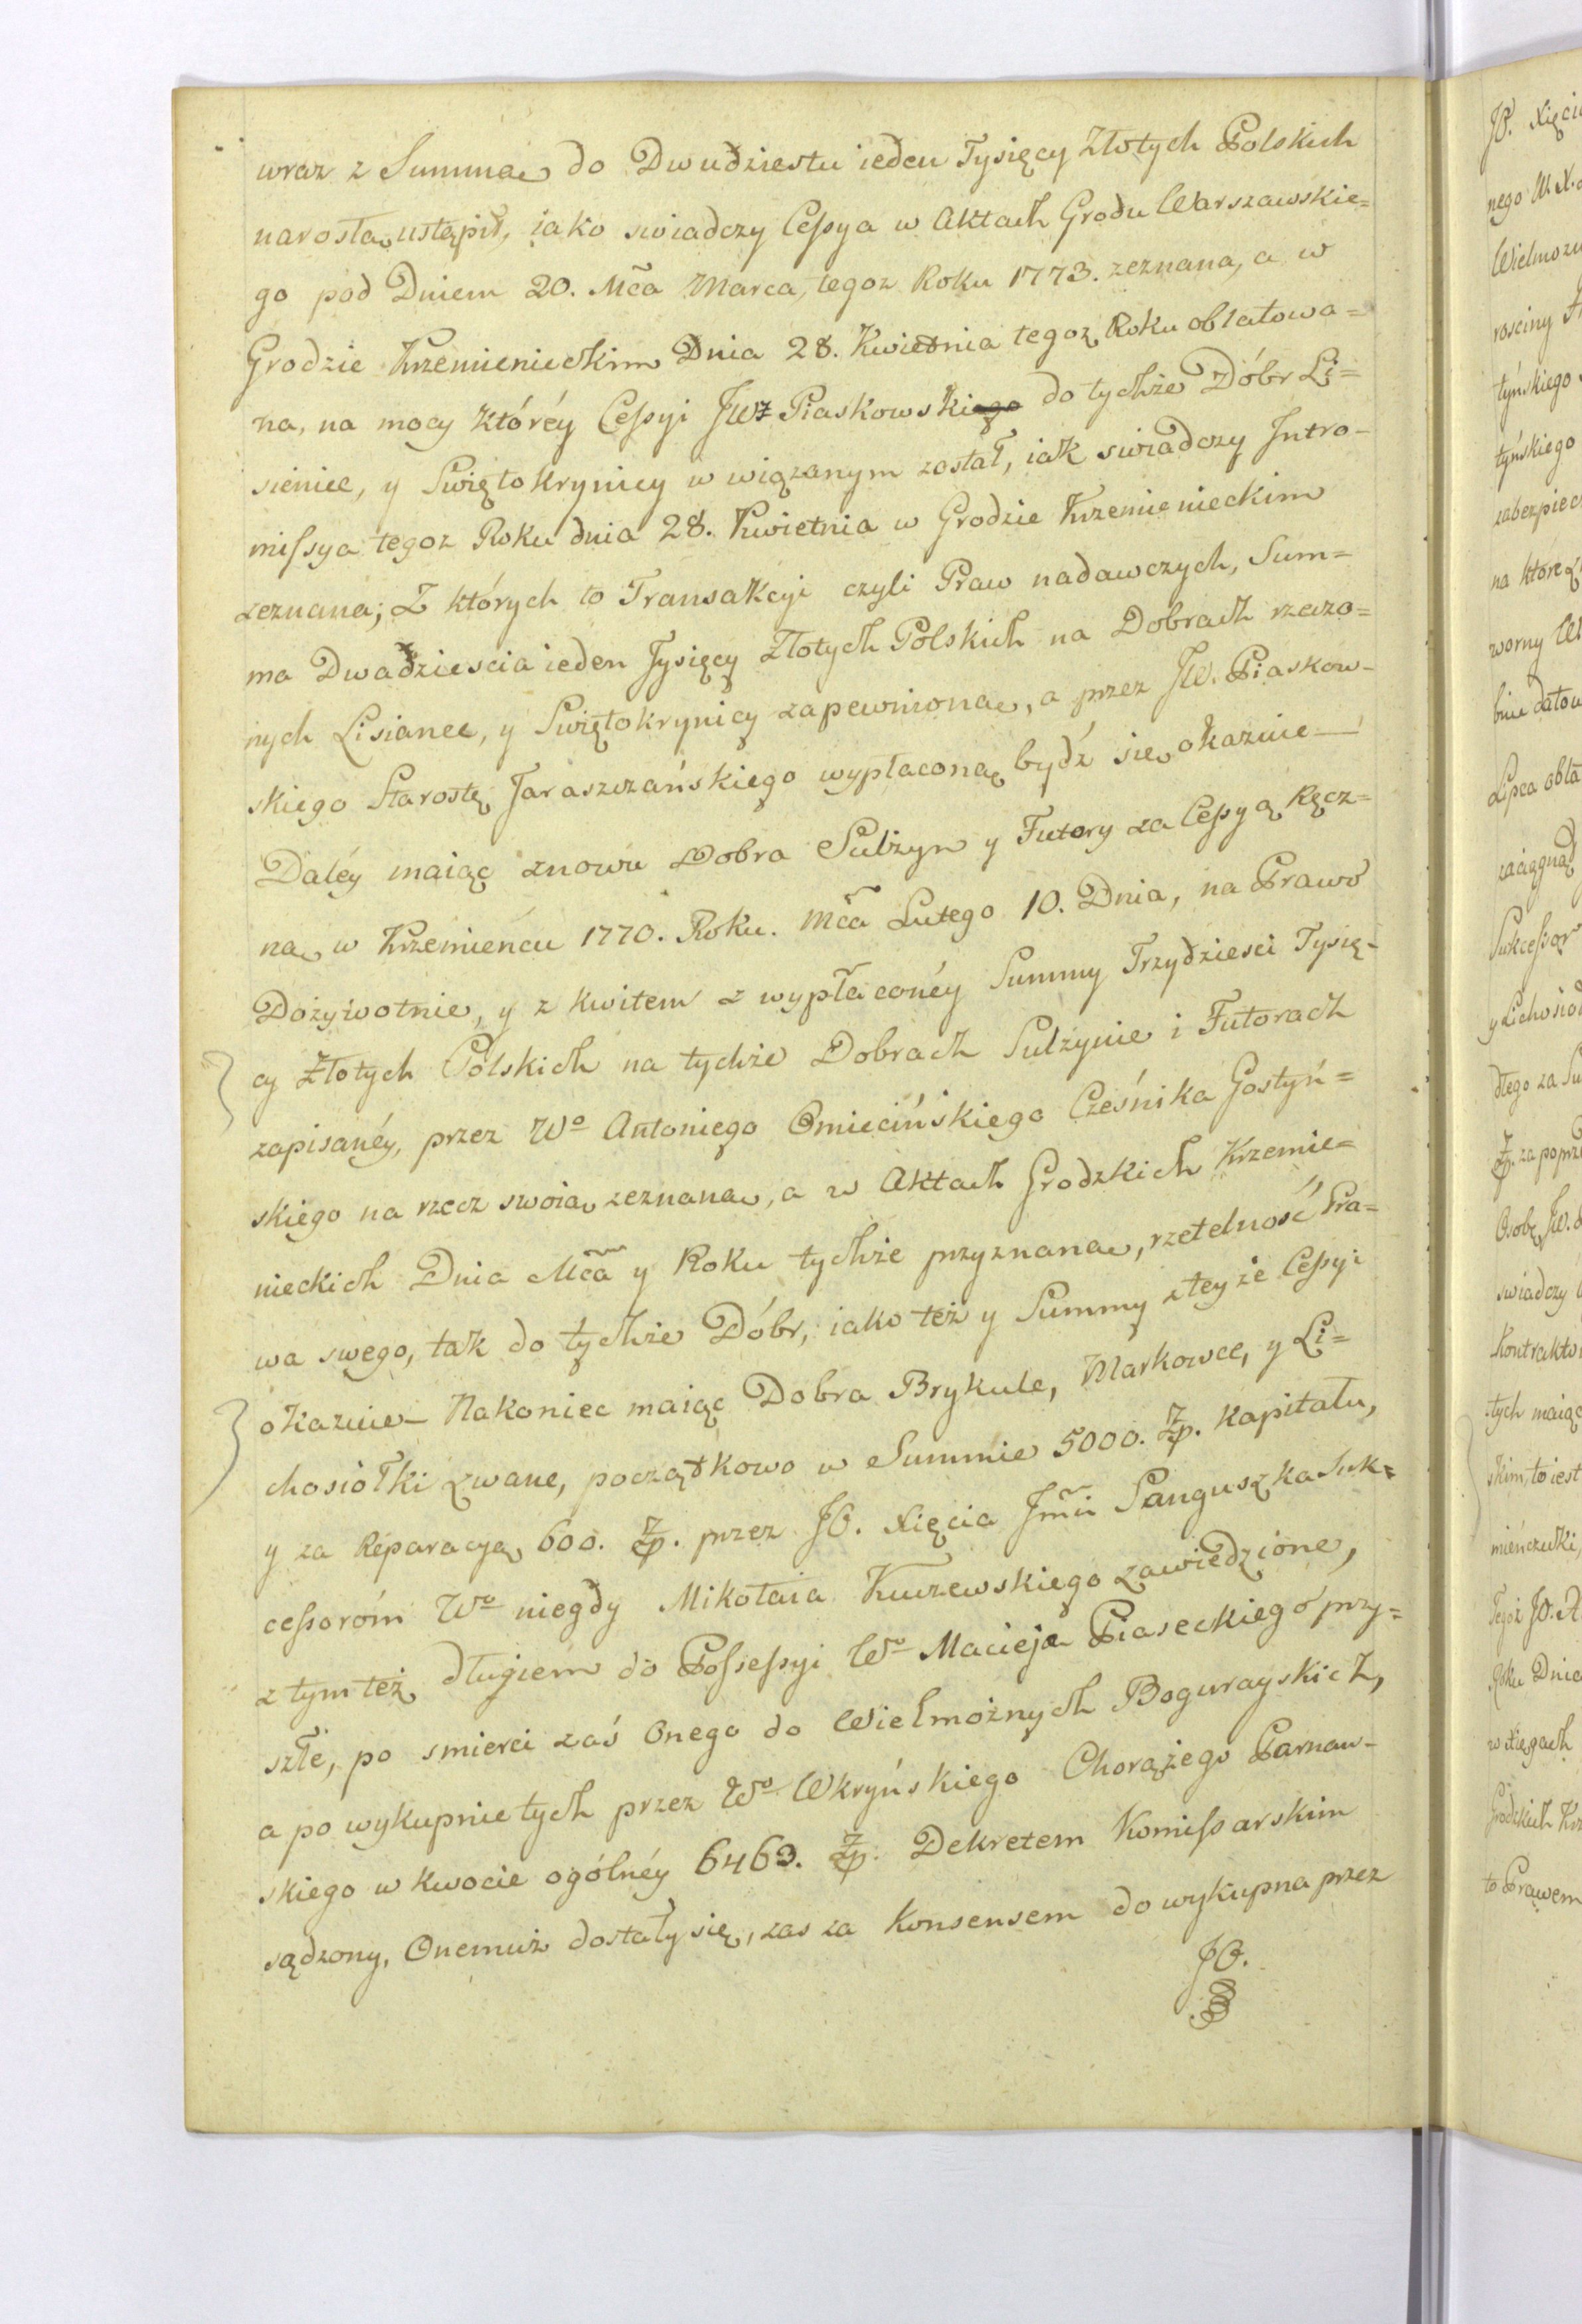 wraz z Summą do Dwudziestu ieden Tysięcy Złotych Polskich
narosłą ustąpił, iako swiadczy Cessya w Aktach Grodu Warszawskie=
go pod Dniem 20. Mca Marca, tegoz Roku 1773. zeznana, a w
Grodzie Krzemienieckim Dnia 28. Kwietnia tegoz Roku oblatowa=
na, na mocy któréy Cessyi JW. Piaskowski do tychże Dóbr Li=
sieniec, y Swiętokrynicy w wiązanym został, iak swiadczy Intro-
missya tegoz Roku dnia 28. Kwietnia w Grodzie Krzemienieckim
zeznana; Z których to Transakcyi czyli Praw nadawczych, Sum=
ma Dwadziescia ieden Tysięcy Złotych Polskich na Dobrach rzeczo=
nych Lisiance, y Swiętokrynicy zapewnioną, a przez JW. Piaskow-
skiego Starostę Taraszczańskiego wypłaconą bydź się okazuie—
Daléy maiąc znowu Dobra Sulżyn y Futory za Cessyą Ręcz=
ną w Krzemieńcu 1770. Roku. Mca Lutego 10. Dnia, na Prawo
Dożywotnie, y z kwitem z wypłaconéy Summy Trzydziesci Tysię-
cy Złotych Polskich na tychże Dobrach Sulzynie i Futorach
zapisanéy, przez Wo Antoniego Omiecińskiego Cześnika Gostyń=
skiego na rzecz swoią zeznaną, a w Aktach Grodzkich Krzemie=
nieckich Dnia Mca y Roku tychże przyznaną, rzetelność Pra=
wa swego, tak do tychże Dóbr, iako też y Summy z teyże Cessyi
okazuie— Nakoniec maiąc Dobra Brykule, Markowce, y Li=
chosiołki zwane, początkowo w Summie 5000. Zp. Kapitału,
y za Reparacyą 600. Zp. przez JO. Xięcia Jmci Sanguszka Suk=
cessoróm Wo niegdy Mikołaia Kurzewskiego zawiedzione,
z tym też długiem do Possessyi Wo Macieja Piaseckiego przy=
szłe, po smierci zaś Onego do Wielmożnych Bogurayskich,
a po wykupnie tych przez Wo Wkryńskiego Chorążego Parnaw-
skiego w kwocie ogólnéy 6463. Zp. Dekretem Komissarskim
sądzony, Onemuż dostały się, zas za Konsensem do wykupna przez
JO.